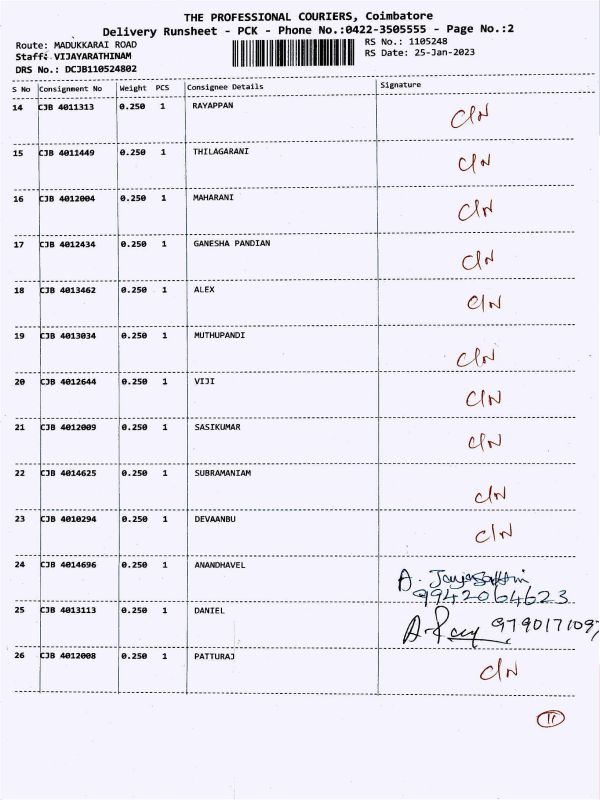 THE PROFESSIONAL COURIERS, Coimbatore
Delivery Runsheet - PCK - Phone No.:0422-3505555 - Page No.:2
Route: MADUKKARAI ROAD RS No.: 1105248
Staff: VIJAYARATHINAM RS Date: 25-Jan-2023
DRS No.: DCJB110524802
S No Consignment No Weight PCS Consignee Details Signature
14 CJB 4011313 0.250 1 RAYAPPAN C/N
15 CJB 4011449 0.250 1 THILAGARANI C/N
16 CJB 4012004 0.250 1 MAHARANI C/N
17 CJB 4012434 0.250 1 GANESHA PANDIAN C/N
18 CJB 4013462 0.250 1 ALEX C/N
19 CJB 4013034 0.250 1 MUTHUPANDI C/N
20 CJB 4012644 0.250 1 VIJI C/N
21 CJB 4012009 0.250 1 SASIKUMAR C/N
22 CJB 4014625 0.250 1 SUBRAMANIAM C/N
23 CJB 4010294 0.250 1 DEVAANBU C/N
24 CJB 4014696 0.250 1 ANANDHAVEL A.
9942064623
25 CJB 4013113 0.250 1 DANIEL 9790171097
26 CJB 4012008 0.250 1 PATTURAJ C/N
11